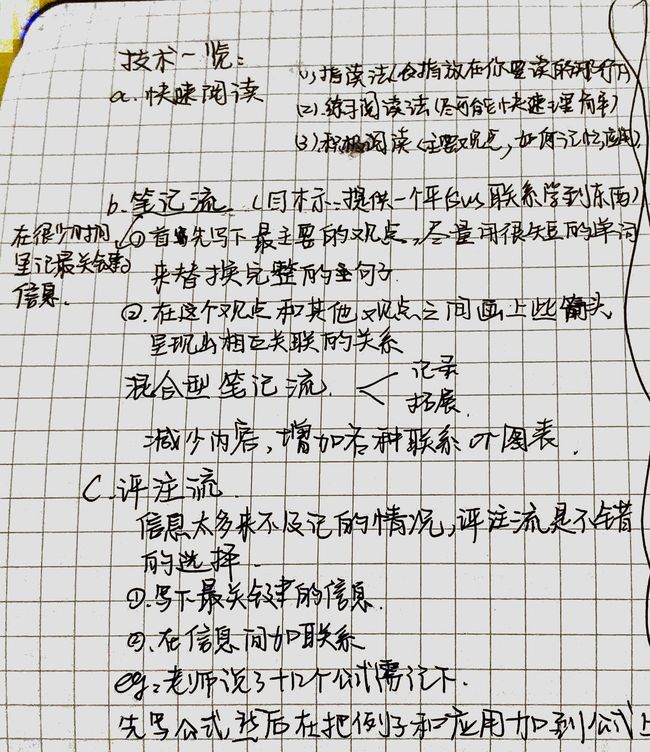 技术一览:
a. 快速阅读
(1) 指读法(食指放在你要读的那行)
(2) 练习阅读法(尽可能快速理简单)
(3) 积极阅读(主要观点,如何记忆,应用)
b. 笔记流 (目标:提供一个平台us联系学到东西)
在很少时间里记最关键信息.
①首先写下最主要的观点,尽量用很短的单词
来替换完整的句子
②.在这个观点和其他观点之间画上些箭头
呈现出相互关联的关系
混合型笔记流. 记录
拓展.
减少内容,增加各种联系 or 图表.
C. 评注流.
信息太多来不及记的情况,评注流是不错
的选择.
①.写下最关键的信息.
②.在信息间加联系
eg:老师说了十几个公式需记下.
先写公式,然后在把例子和应用加到公式上